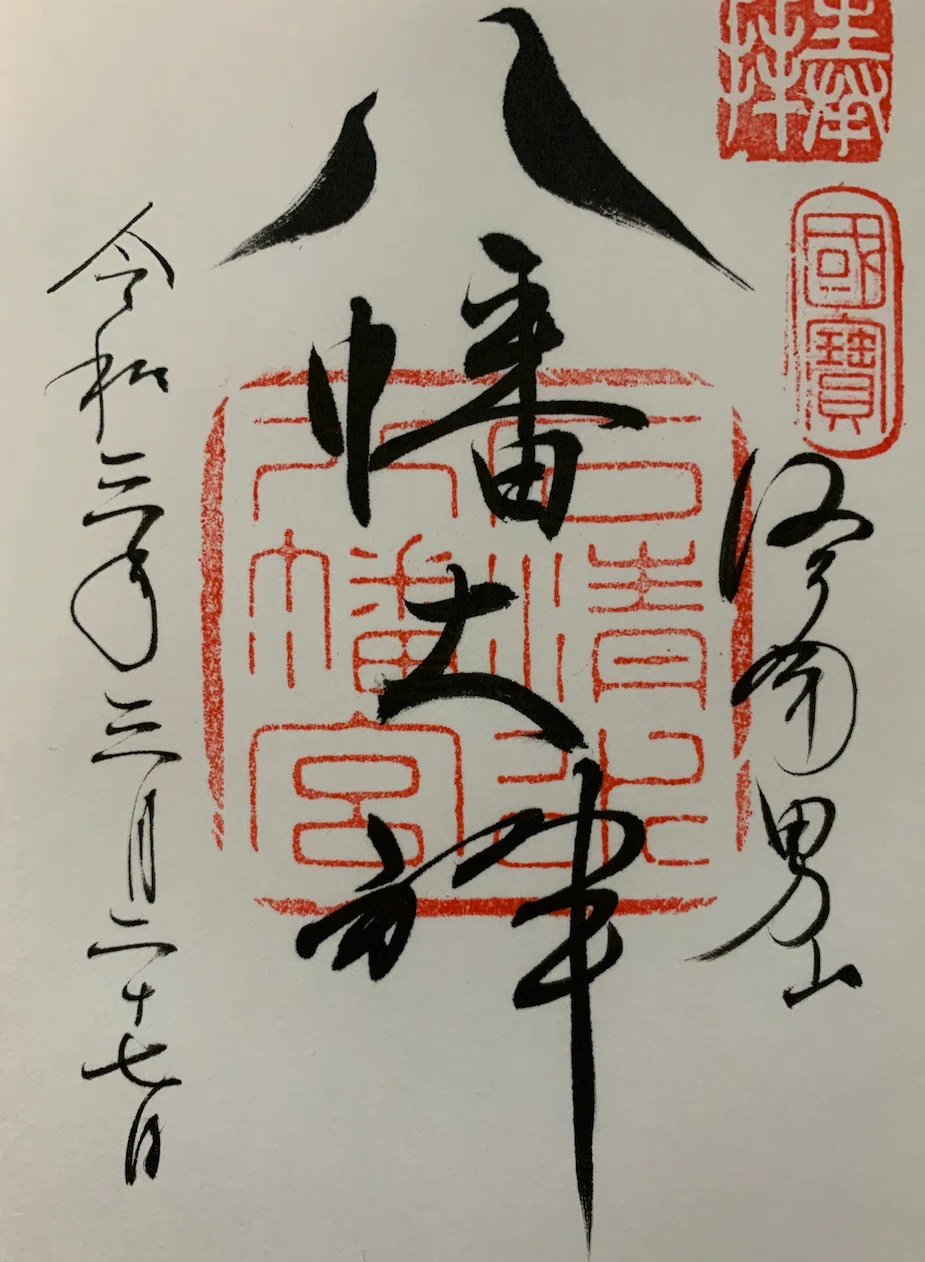 奉拝
國寶
洛南男山
八幡大神
石清水
八幡宮
令和三年三月二十七日